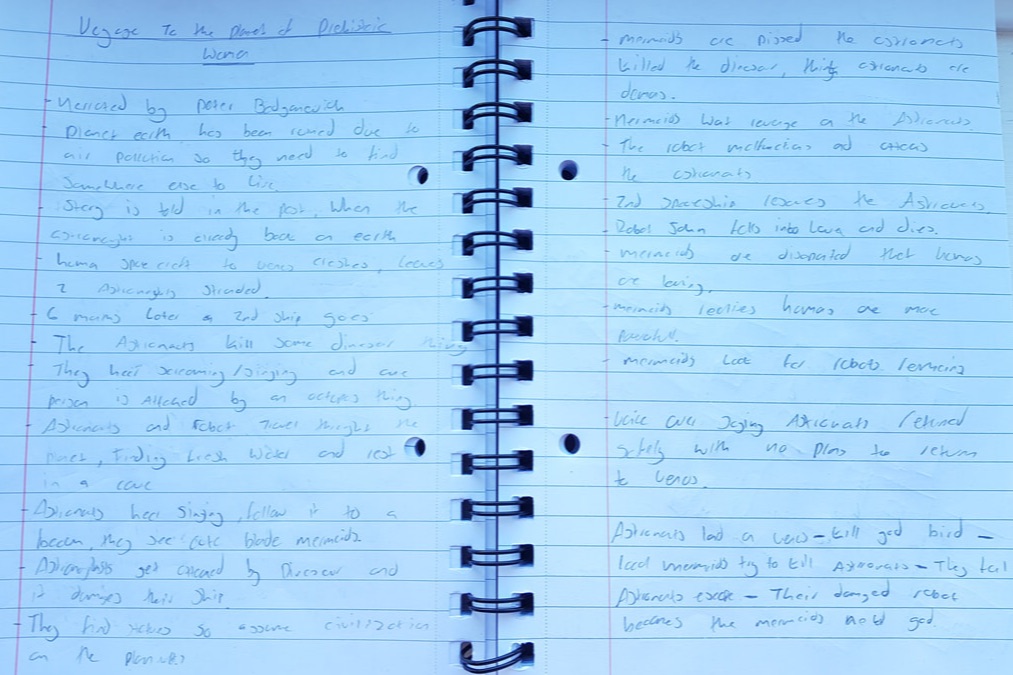 Voyage To the planet of Prehistoric
Women
- Narrated by Peter Bodganovich
Planet earth has been ruined due to
air pollution so they need to find
somewhere else to live
- Story is told in the past, when the
is already back on earth
human space craft to venus crashes, leaves
2 stranded.
6 months later a 2nd ship goes
The Astronauts kill some dinosaur things
They hear screaming/singing and one
person is attacked by an octopus thing
Astronauts and robot travel the
planet, finding fresh water and rest
in a cave
- Astronauts hear singing, follow it to a
they see blonde mermaids.
- get attacked by Dinosaur and
it damages their ship.
- They find so assume civilization
on the
- mermaids are pissed the astronauts
killed the dinosaur, think astronauts are
demons.
- Mermaids want revenge on the Astronauts.
- The robot malfunctions and attacks
the astronauts
- 2nd spaceship rescues the Astronauts.
- Robot John falls into Lava and dies.
- mermaids are that humans
are leaving.
- mermaids realises humans are more
powerful.
- mermaids look for robots remains
- voice over saying Astronauts returned
safely with no plans to return
to venus.
Astronauts land on venus – kill god bird –
lead mermaids try to kill Astronauts – They fail
Astronauts escape – Their damaged robot
becomes the mermaids new god.